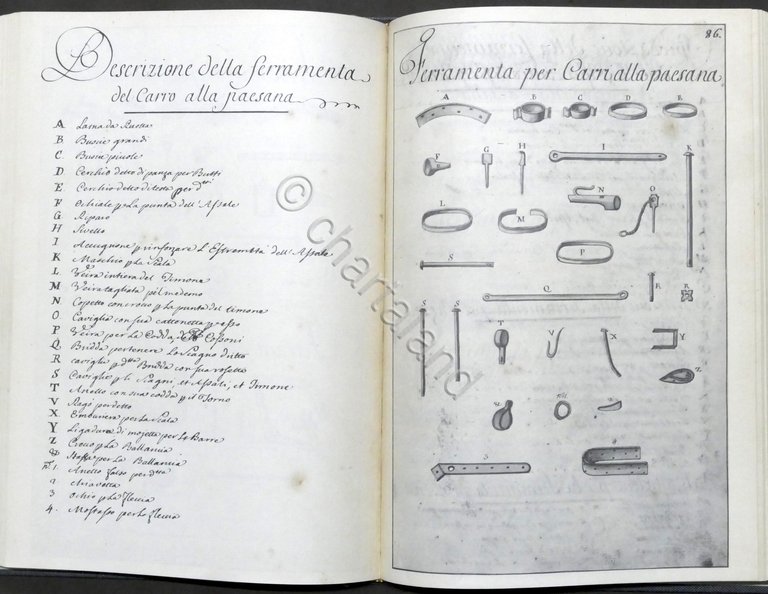 Descrizione della ferramenta
del Carro alla paesana
A Lama da Ruotta
B Buscie grandi
C Buscie picole
D Cerchio detto di panza per Butti
E Cerchio detto di testa per d.tti
F Ochiale p La punta dell'Assale
G Riparo
H Sivello
I Acuignone p rinforzare L'Estremittà dell'Assale
K Maschio p La Scala
L Veira intiera del Timone
M Veira tagliata pel medemo
N Copetto con croso p La punta del timone
O Caviglia con sua cattenetta p esso
P Veira per La Codda de Cossoni
Q Bridda per tenere Lo Scagno dritto
R Caviglia p d.tta Bridda con sua rosetta
S Caviglie p li Scagni, et Assali, et Timone
T Anello con sua codda p il Torno
V Ragô per detto
X Embuvera per La Scala
Y Ligadura di mojetta per Le Barre
Z p La Ballancia
& Staffa per La Ballancia
n.° 1. Anello falso per d.tta
2 Chiavetta
3 Ochio p La flecia
4. per La flecia
86.
Ferramenta per Carri alla paesana
A B C D E
F G H I K
N O
L M
P
Q R R
S S
T V X Y
Z
& N.1
3 4
© chartaland